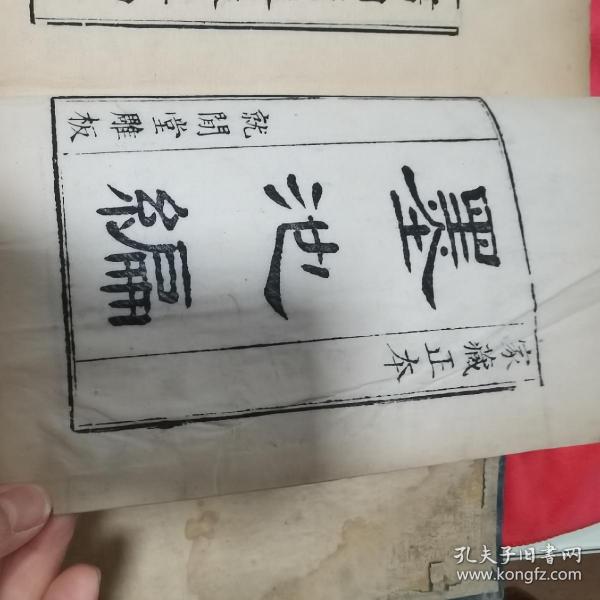 家藏正本
墨池編
就閒堂雕板
孔夫子旧书网
www.kongfz.com